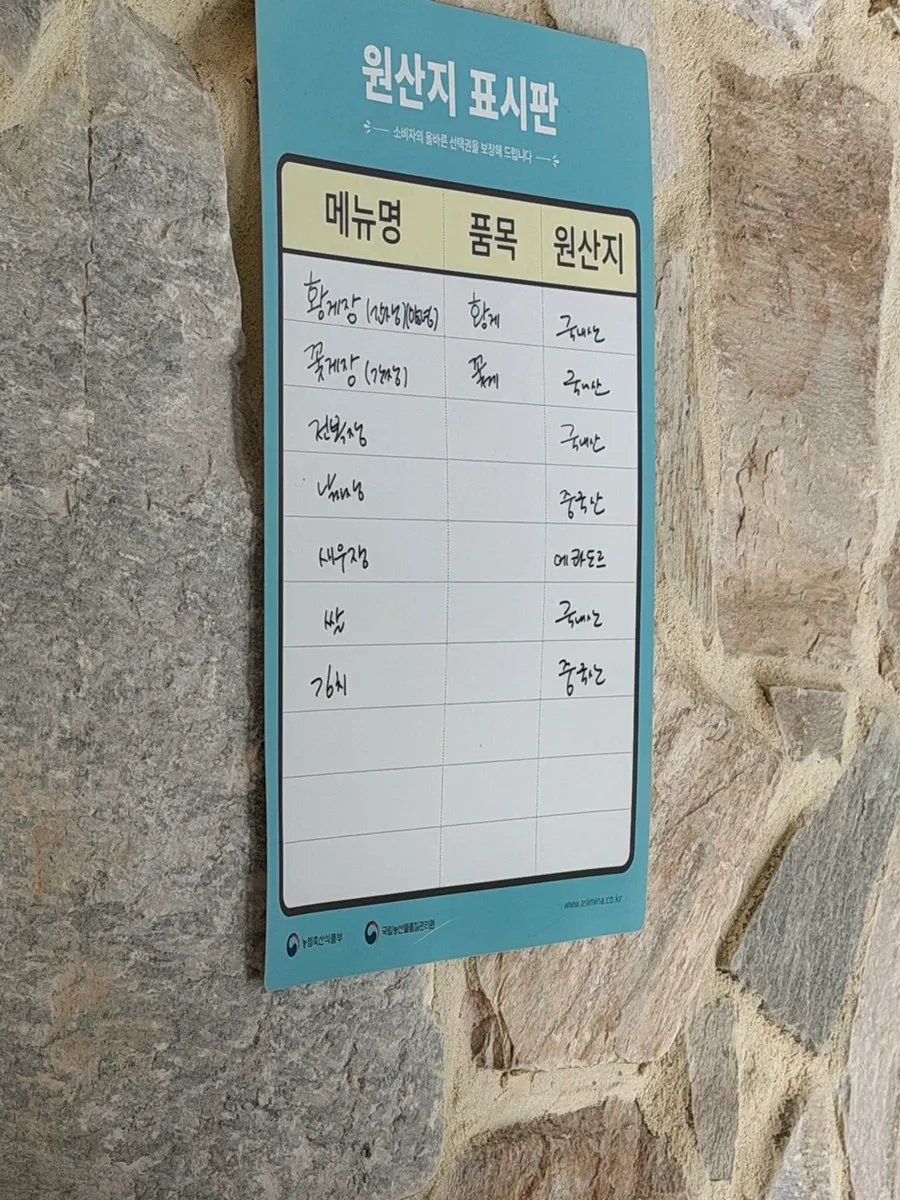 원산지 표시판
소비자의 올바른 선택권을 보장해 드립니다
메뉴명 품목 원산지
황게장 (간장)(양념) 황게 국내산
꽃게장 (간장) 꽃게 국내산
전복장 국내산
중국산
새우장 에콰도르
쌀 국내산
김치 중국산
www.asimina.co.kr
농림축산식품부 국립농산물품질관리원